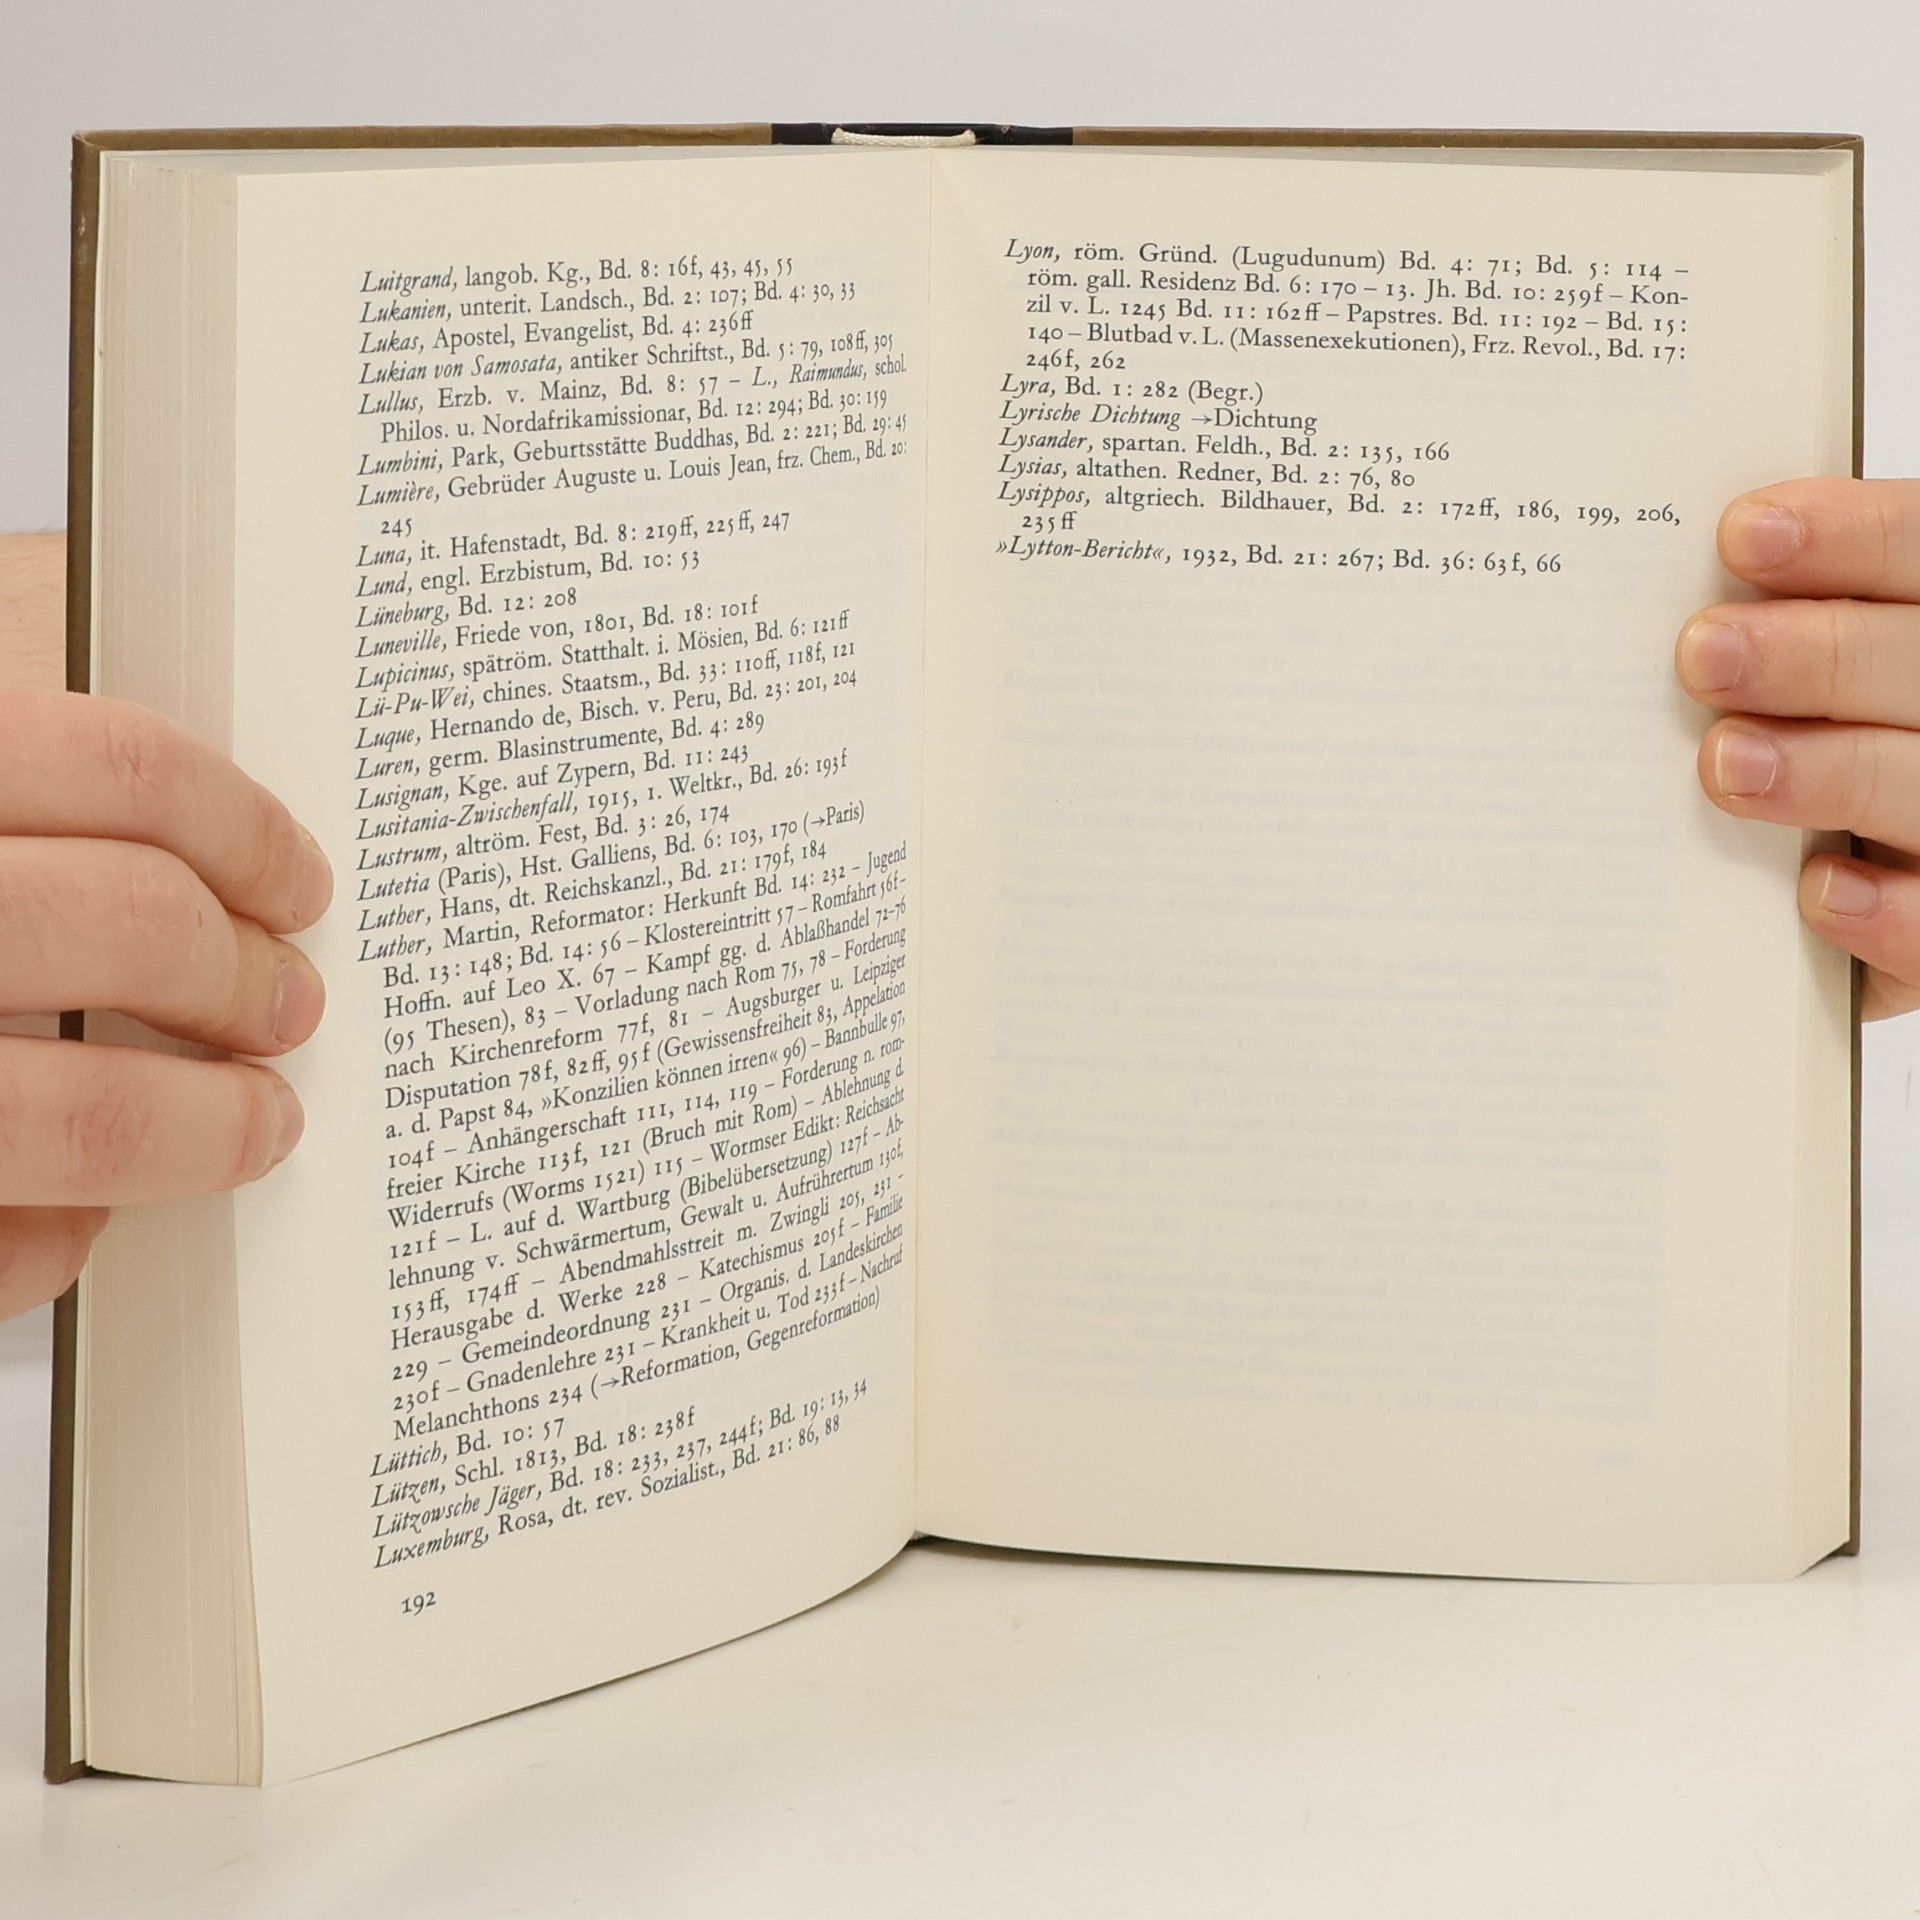 Luitgrand, langob. Kg., Bd. 8: 16f, 43, 45, 55
Lukanien, unterit. Landsch., Bd. 2: 107; Bd. 4: 30, 33
Lukas, Apostel, Evangelist, Bd. 4: 236ff
Lukian von Samosata, antiker Schriftst., Bd. 5: 79, 108ff, 305
Lullus, Erzb. v. Mainz, Bd. 8: 57 – L., Raimundus, schol.
Philos. u. Nordafrikamissionar, Bd. 12: 294; Bd. 30: 159
Lumbini, Park, Geburtsstätte Buddhas, Bd. 2: 221; Bd. 29: 45
Lumière, Gebrüder Auguste u. Louis Jean, frz. Chem., Bd. 20:
245
Luna, it. Hafenstadt, Bd. 8: 219ff, 225ff, 247
Lund, engl. Erzbistum, Bd. 10: 53
Lüneburg, Bd. 12: 208
Luneville, Friede von, 1801, Bd. 18: 101f
Lupicinus, spätröm. Statthalt. i. Mösien, Bd. 6: 121ff
Lü-Pu-Wei, chines. Staatsm., Bd. 33: 110ff, 118f, 121
Luque, Hernando de, Bisch. v. Peru, Bd. 23: 201, 204
Luren, germ. Blasinstrumente, Bd. 4: 289
Lusignan, Kge. auf Zypern, Bd. 11: 243
Lusitania-Zwischenfall, 1915, 1. Weltkr., Bd. 26: 193f
Lustrum, altröm. Fest, Bd. 3: 26, 174
Lutetia (Paris), Hst. Galliens, Bd. 6: 103, 170 (→Paris)
Luther, Hans, dt. Reichskanzl., Bd. 21: 179f, 184
Luther, Martin, Reformator: Herkunft Bd. 14: 232 – Jugend
Bd. 13: 148; Bd. 14: 56 – Klostereintritt 57 – Romfahrt 56f –
Hoffn. auf Leo X. 67 – Kampf gg. d. Ablaßhandel 72–76
(95 Thesen), 83 – Vorladung nach Rom 75, 78 – Forderung
nach Kirchenreform 77f, 81 – Augsburger u. Leipziger
Disputation 78f, 82ff, 95f (Gewissensfreiheit 83, Appelation
a. d. Papst 84, »Konzilien können irren« 96) – Bannbulle 97,
104f – Anhängerschaft 111, 114, 119 – Forderung n. rom-
freier Kirche 113f, 121 (Bruch mit Rom) – Ablehnung d.
Widerrufs (Worms 1521) 115 – Wormser Edikt: Reichsacht
121f – L. auf d. Wartburg (Bibelübersetzung) 127f – Ab-
lehnung v. Schwärmertum, Gewalt u. Aufrührertum 130f,
153ff, 174ff – Abendmahlsstreit m. Zwingli 205, 231 –
Herausgabe d. Werke 228 – Katechismus 205f – Familie
229 – Gemeindeordnung 231 – Organis. d. Landeskirchen
230f – Gnadenlehre 231 – Krankheit u. Tod 233f – Nachruf
Melanchthons 234 (→Reformation, Gegenreformation)
Lüttich, Bd. 10: 57
Lützen, Schl. 1813, Bd. 18: 238f
Lützowsche Jäger, Bd. 18: 233, 237, 244f; Bd. 19: 13, 34
Luxemburg, Rosa, dt. rev. Sozialist., Bd. 21: 86, 88
192
Lyon, röm. Gründ. (Lugudunum) Bd. 4: 71; Bd. 5: 114 –
röm. gall. Residenz Bd. 6: 170 – 13. Jh. Bd. 10: 259f – Kon-
zil v. L. 1245 Bd. 11: 162ff – Papstres. Bd. 11: 192 – Bd. 15:
140 – Blutbad v. L. (Massenexekutionen), Frz. Revol., Bd. 17:
246f, 262
Lyra, Bd. 1: 282 (Begr.)
Lyrische Dichtung →Dichtung
Lysander, spartan. Feldh., Bd. 2: 135, 166
Lysias, altathen. Redner, Bd. 2: 76, 80
Lysippos, altgriech. Bildhauer, Bd. 2: 172ff, 186, 199, 206,
235ff
»Lytton-Bericht«, 1932, Bd. 21: 267; Bd. 36: 63f, 66